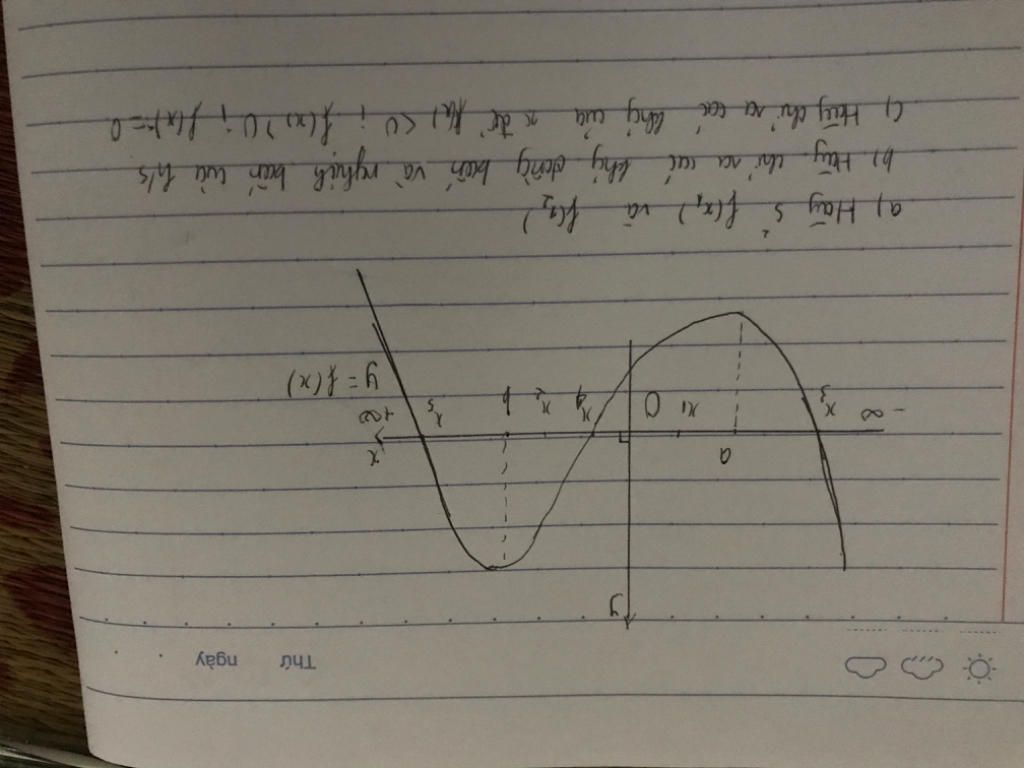 Thứ ngày
y
x
a
-∞ x₃ x₁ O x₄ x₂ b x₅ +∞
y = f(x)
a) Hãy s² f(x₁) và f(x₂)
b) Hãy chỉ ra các khg đồng biến và nghịch biến của h/s
c) Hãy chỉ ra các khg của x để f(x) < 0 ; f(x) > 0 ; f(x) = 0